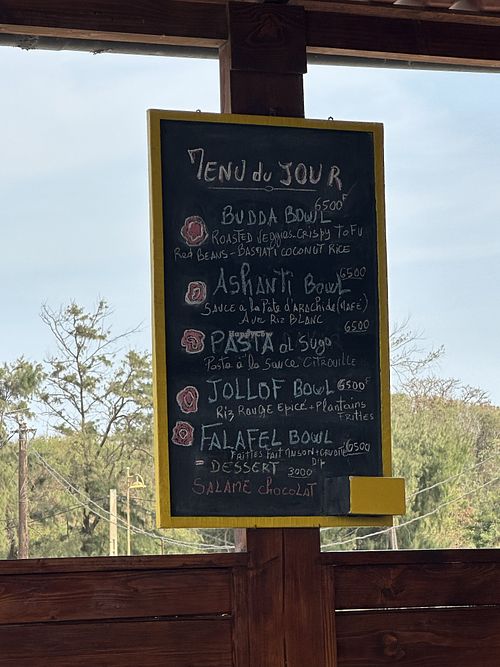 MENU du JOUR
BUDDA BOWL 6500F
ROASTED VEGGIES-CRISPY TOFU
Red BEANS - BASMATI COCONUT RICE
ASHANTI BOWL 6500
SAUCE a la Pate d'ARACHIDE (MAFE)
AVEC RIZ BLANC
6500
HappyCow
PASTA al Sugo
Pasta à la sauce CITROUILLE
JOLLOF BOWL 6500F
RIZ ROUGE EPICE + PLANTAINS
FRITTES
FALAFEL BOWL
FRITTES FAIT MAISON + CRUDITE 6500
- DESSERT 3000
SALAME chocolat